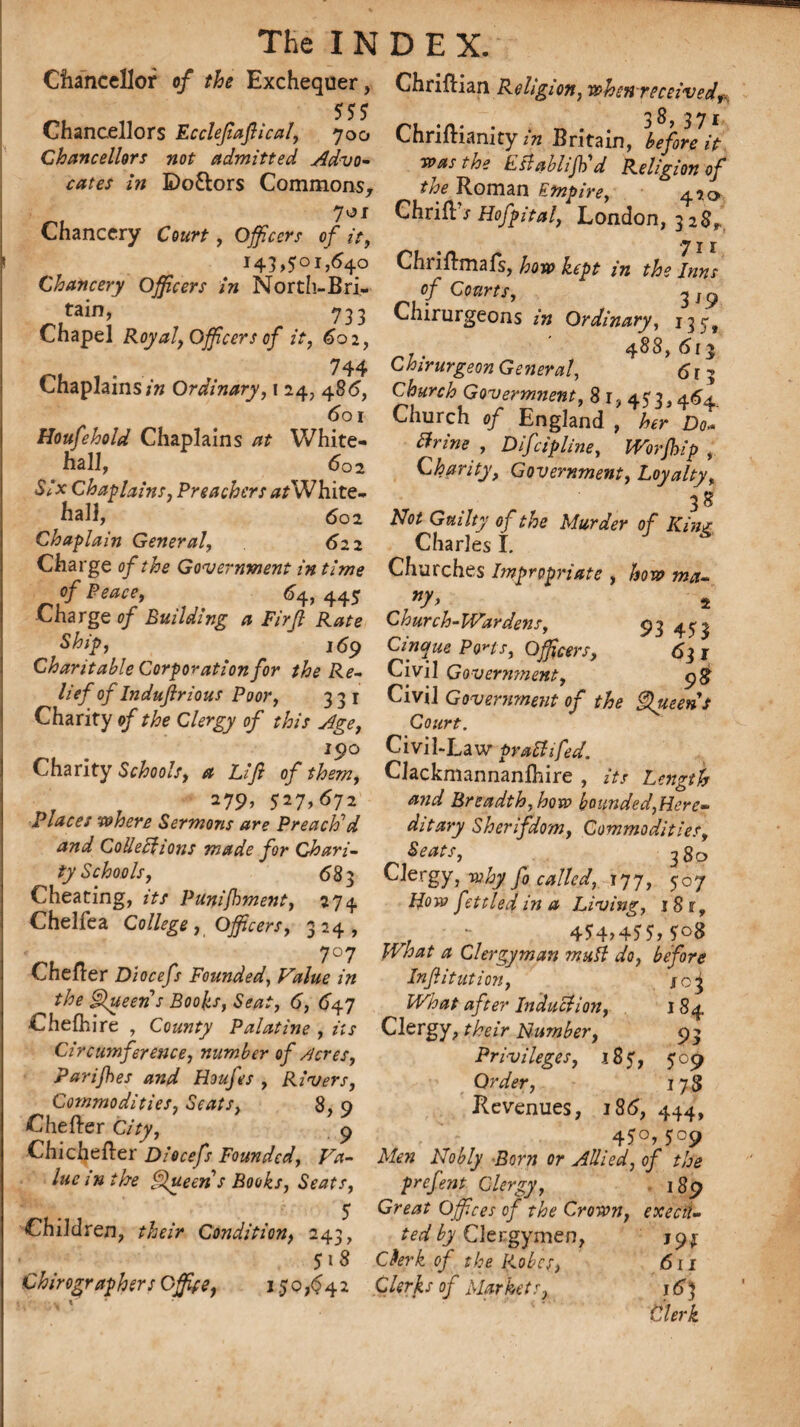 The INDEX.
Chancellor of the Exchequer,
555
Chancellors Eccleſiaſtical, 700
Chancellors not admitted Advo-
cates in Doctors Commons,
701
Chancery Court, Officers of it,
143,501,640
Chancery Officers in North-Bri-
tain, 733
Chapel Royal, Officers of it, 602,
744
Chaplains in Ordinary, 124, 486,
601
Houſehold Chaplains at White-
hall, 602
Six Chaplains, Preachers at White-
hall, 602
Chaplain General, 622
Charge of the Government in time
of Peace, 64, 445
Charge of Building a Firſt Rate
Ship, 169
Charitable Corporation for the Re-
lief of Induſtrious Poor, 331
Charity of the Clergy of this Age,
190
Charity Schools, a Liſt of them,
279, 527, 672
Places where Sermons are Preach'd
and Collections made for Chari-
ty Schools, 683
Cheating, its Puniſhment, 274
Chelſea College, Officers, 324,
707
Cheſter Dioceſs Founded, Value in
the Queen's Books, Seat, 6, 647
Cheſhire, County Palatine, its
Circumference, number of Acres,
Pariſhes and Houſes, Rivers,
Commodities, Seats, 8, 9
Cheſter City, 9
Chicheſter Dioceſs Founded, Va-
lue in the Queen's Books, Seats,
5
Children, their Condition, 243,
518
Chirographers Office, 150,642
Chriſtian Religion, when received,
38, 371
Chriſtianity in Britain, before it
was the Eſtabliſh'd Religion of
the Roman Empire, 420
Chriſt's Hoſpital, London, 328,
711
Chriſtmaſs, how kept in the Inns
of Courts, 319
Chirurgeons in Ordinary, 135,
488, 613
Chirurgeon General, 613
Church Govermnent, 81, 453, 464.
Church of England, her Do-
ctrine, Diſcipline, Worſhip,
Charity, Government, Loyalty,
38
Not Guilty of the Murder of King
Charles I.
Churches Impropriate, how ma-
ny, 2
Church-Wardens, 93 453
Cinque Ports, Officers, 631
Civil Government, 98
Civil Government of the Queen's
Court.
Civil-Law practiſed.
Clackmannanſhire, its Length
and Breadth, how bounded, Here-
ditary Sherifdom, Commodities,
Seats, 380
Clergy, why ſo called, 177, 507
How ſettled in a Living, 181,
454, 455, 508
What a Clergyman muſt do, before
Inſtitution, 103
What after Induction, 184
Clergy, their Number, 93
Privileges, 185, 509
Order, 178
Revenues, 186, 444,
450, 509
Men Nobly Born or Allied, of the
preſent Clergy, 189
Great Offices of the Crown, execu-
ted by Clergymen, 191
Clerk of the Robes, 611
Clerks of Markets, 163
Clerk